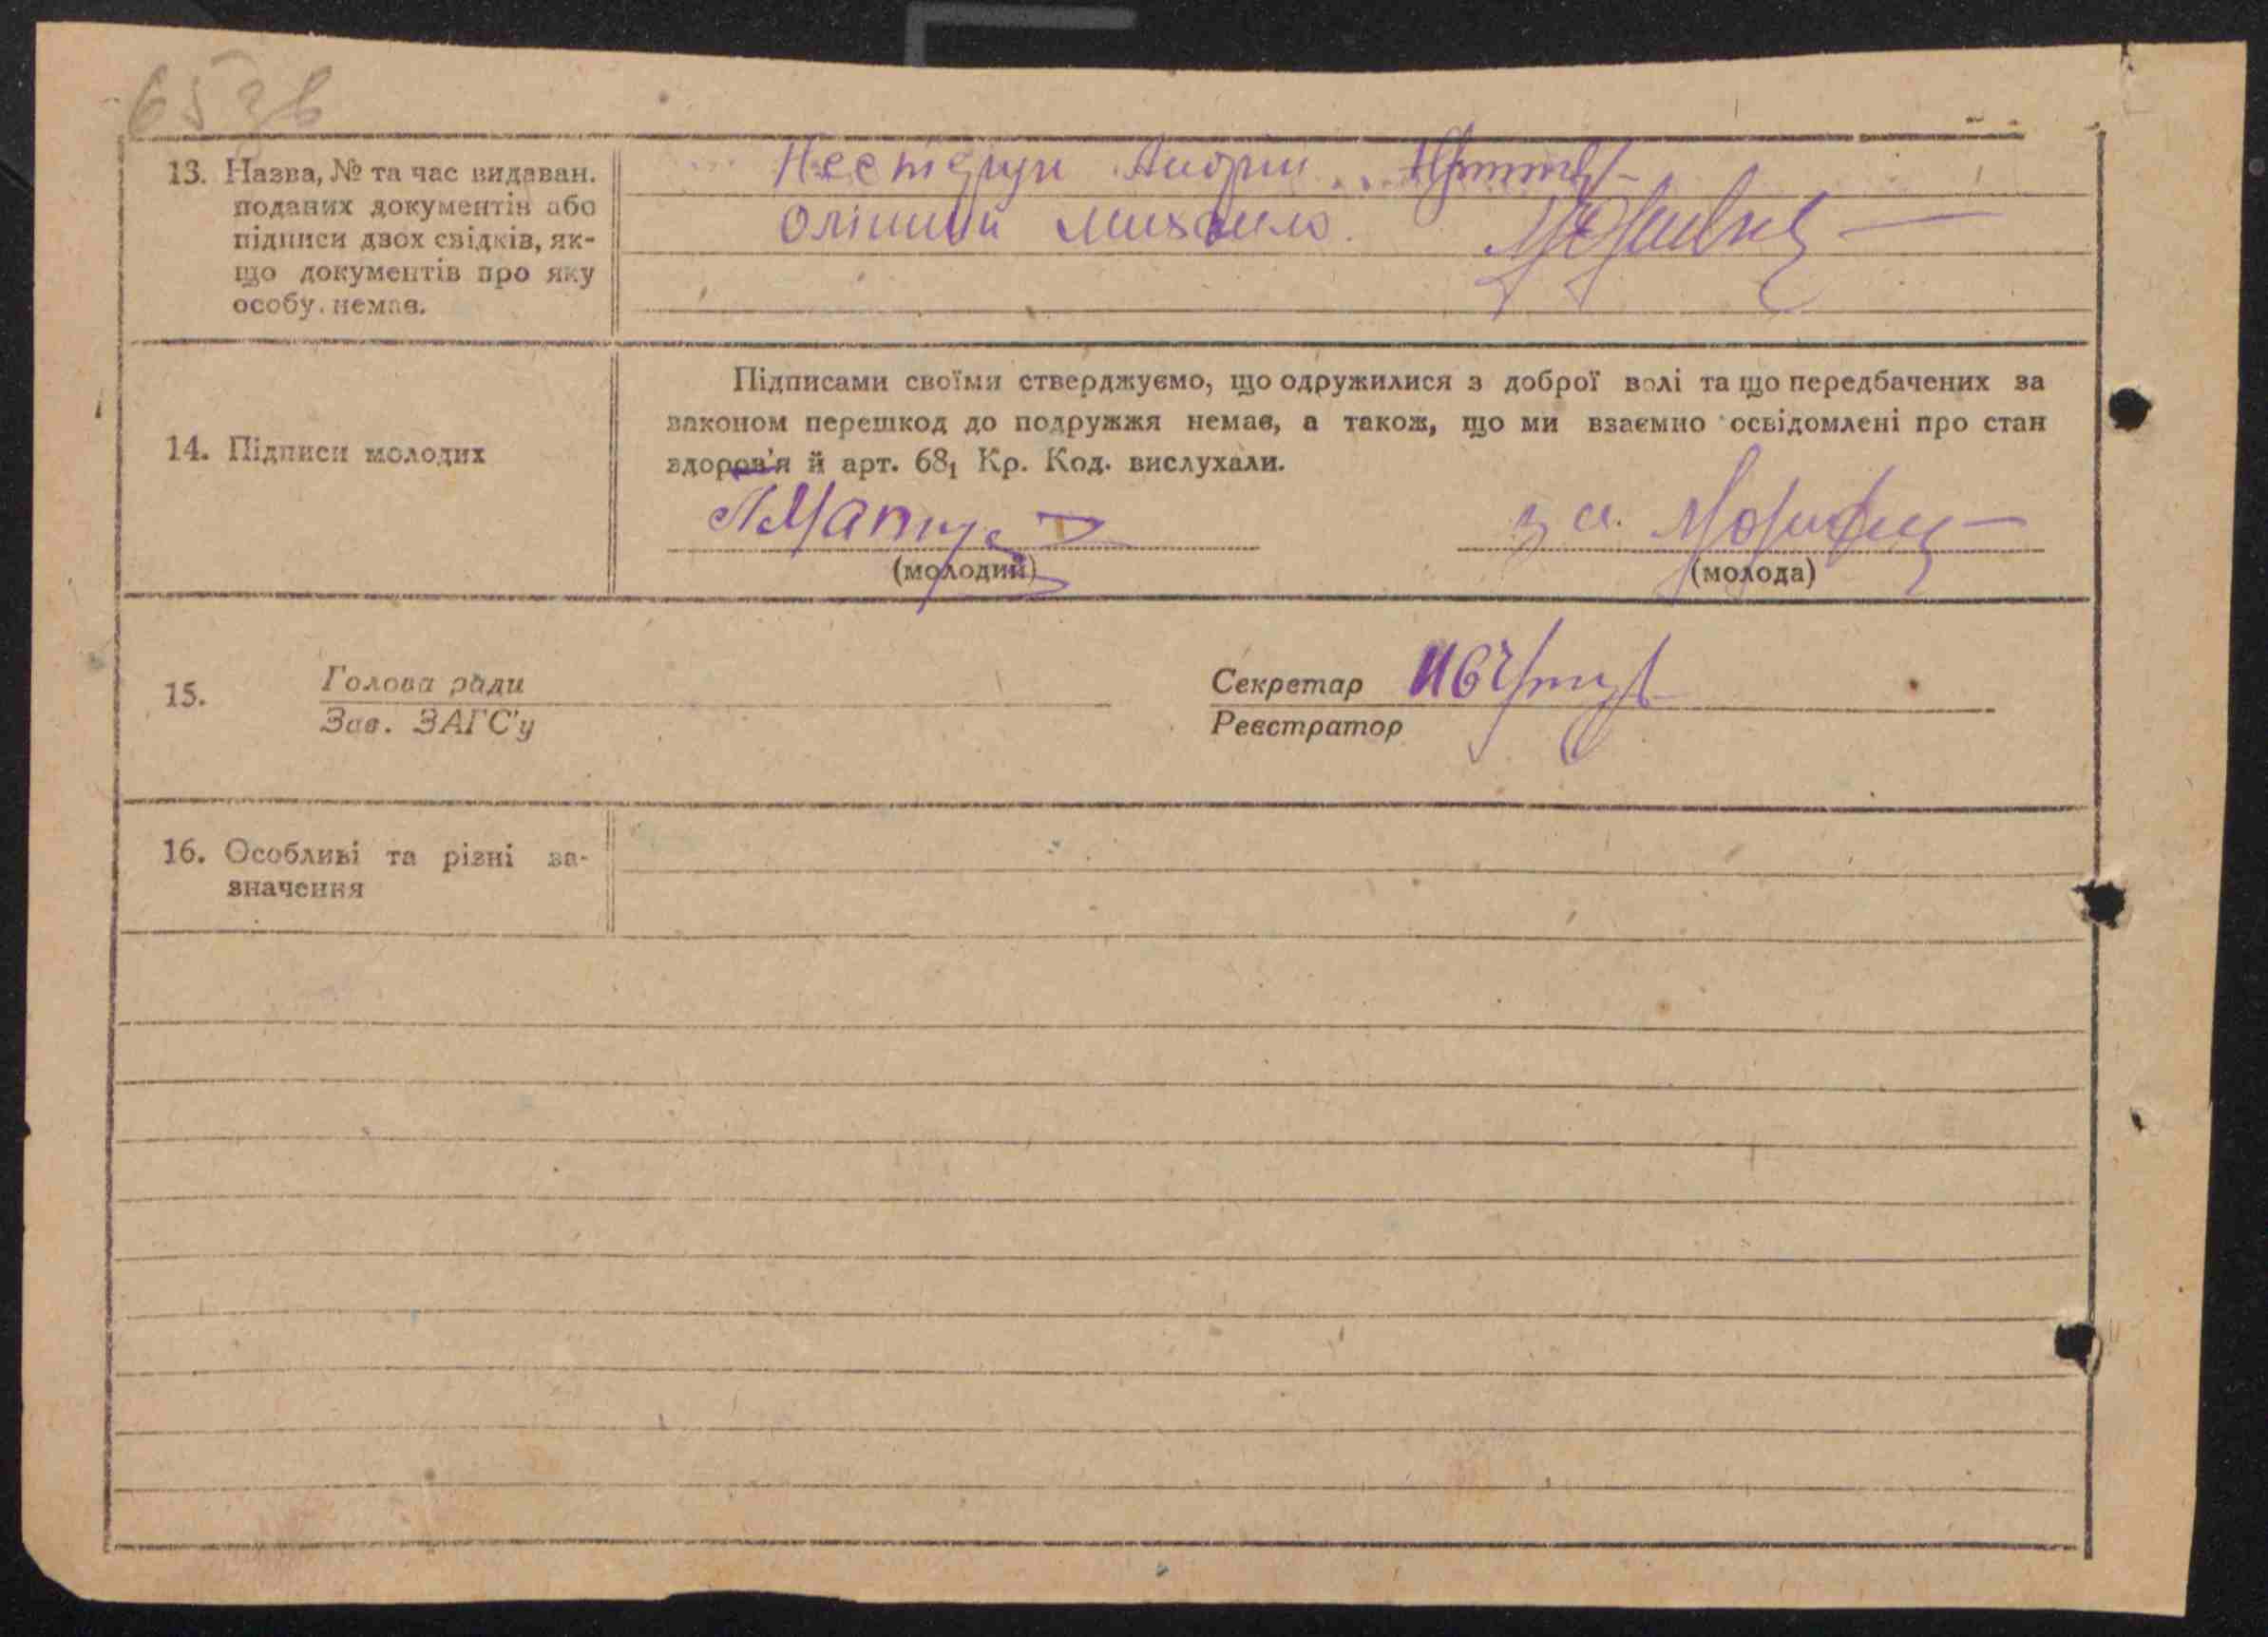 65 зв
13. Назва, № та час видаван.
поданих документів або
підписи двох свідків, як-
що документів про яку
особу. немає.
Андрій
Михайло.
14. Підписи молодих
Підписами своїми стверджуємо, що одружилися з доброї волі та що передбачених за
законом перешкод до подружжя немає, а також, що ми взаємно освідомлені про стан
здоров'я й арт. 68₁ Кр. Код. вислухали.
(молодий)
(молода)
15.
Голова ради
Зав. ЗАГС'у
Секретар
Реєстратор
16. Особливі та різні за-
значення